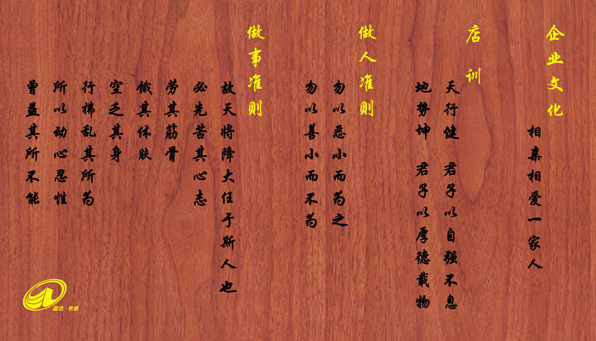 企业文化
相亲相爱一家人
店训
天行健 君子以自强不息
地势坤 君子以厚德载物
做人准则
勿以恶小而为之
勿以善小而不为
做事准则
故天将降大任于斯人也
必先苦其心志
劳其筋骨
饿其体肤
空乏其身
行拂乱其所为
所以动心忍性
曾益其所不能